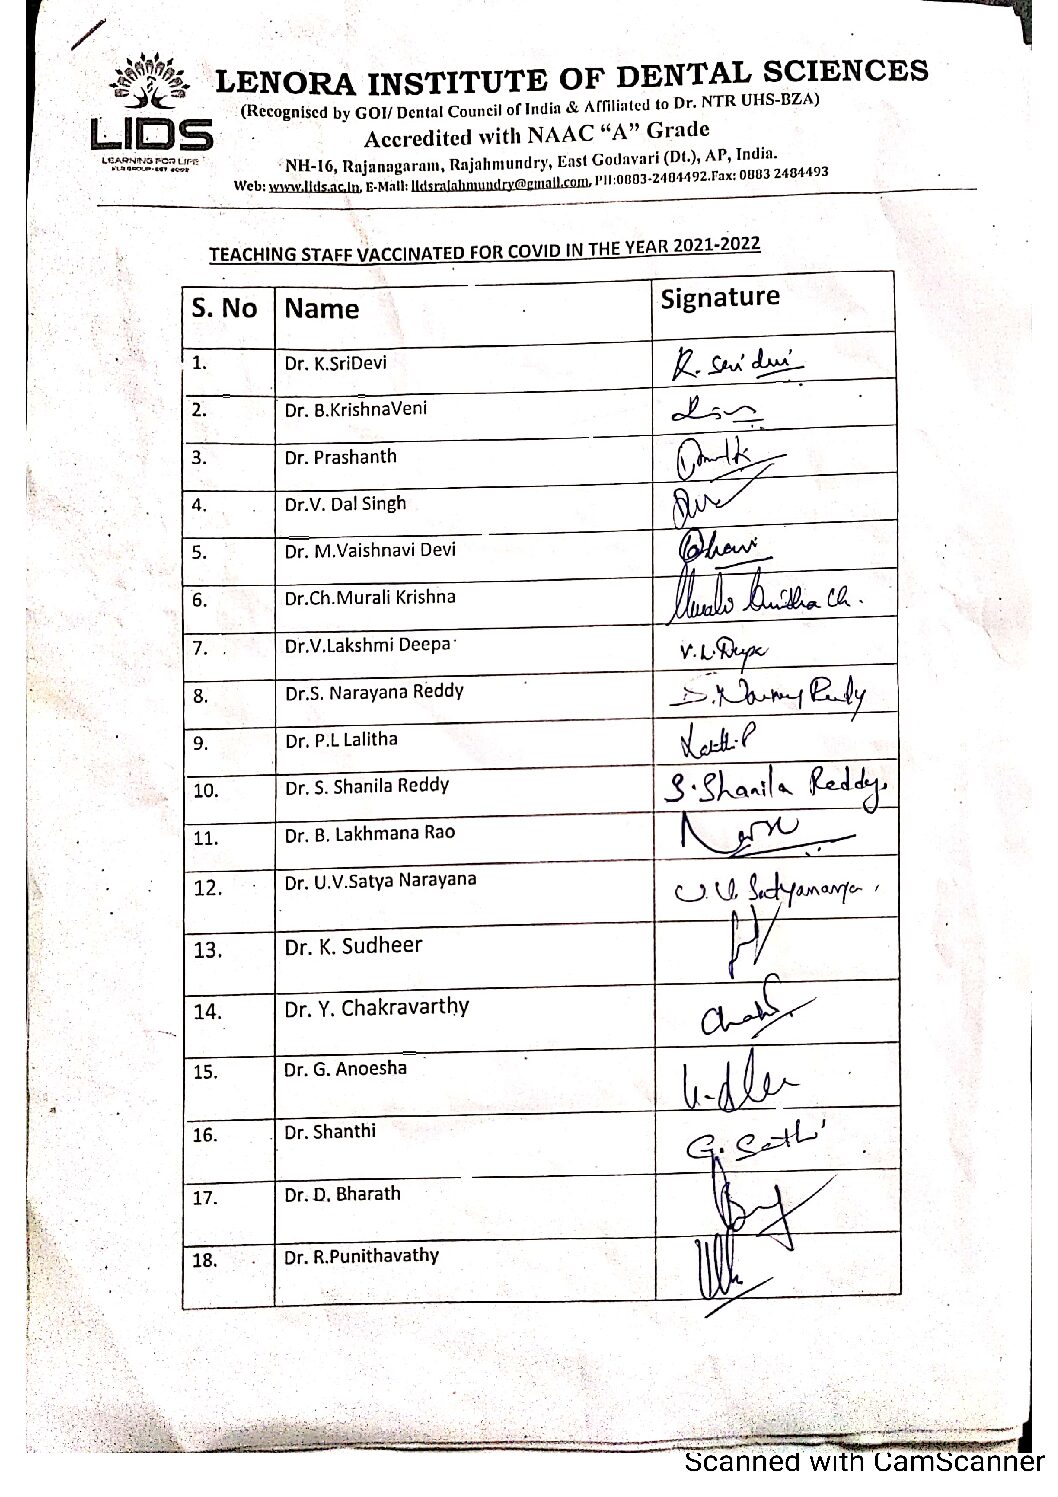 LENORA INSTITUTE OF DENTAL SCIENCES
(Recognised by GOI/ Dental Council of India & Affiliated to Dr. NTR UHS-BZA)
Accredited with NAAC “A” Grade
LIDS
LEARNING FOR LIFE
NH-16, Rajanagaram, Rajahmundry, East Godavari (Dt.), AP, India.
Web: www.lids.ac.in, E-Mail: lidsrajahmundry@gmail.com, PH:0883-2484492.Fax: 0883 2484493
TEACHING STAFF VACCINATED FOR COVID IN THE YEAR 2021-2022
S. No Name Signature
1. Dr. K.SriDevi
2. Dr. B.KrishnaVeni
3. Dr. Prashanth
4. Dr.V. Dal Singh
5. Dr. M.Vaishnavi Devi
6. Dr.Ch.Murali Krishna
7. Dr.V.Lakshmi Deepa V.L.Deepa
8. Dr.S. Narayana Reddy
9. Dr. P.L Lalitha
10. Dr. S. Shanila Reddy S. Shanila Reddy
11. Dr. B. Lakhmana Rao
12. Dr. U.V.Satya Narayana
13. Dr. K. Sudheer
14. Dr. Y. Chakravarthy
15. Dr. G. Anoesha
16. Dr. Shanthi
17. Dr. D. Bharath
18. Dr. R.Punithavathy
Scanned with CamScanner